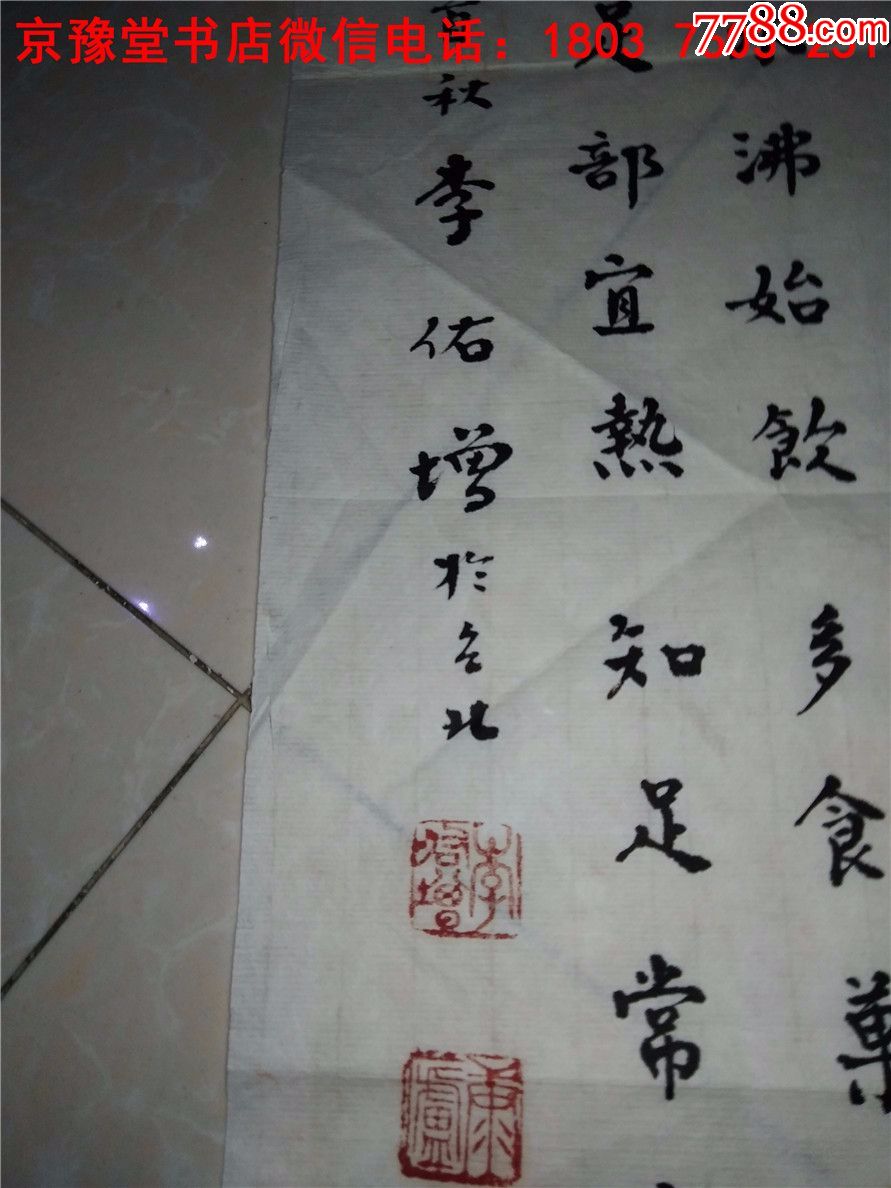 京豫堂书店微信电话：1803 7
7788.com
沸始飲 多食菓
足部宜熱 知足常
秋李佑增於台北
李佑增